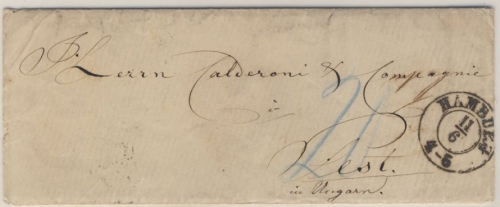 Herrn Calderoni & Compagnie
in
Pest.
in Ungarn.
HAMBURG
11
6
4-5